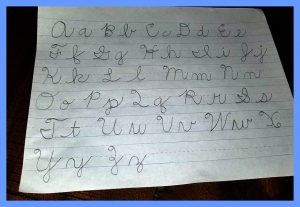 Aa Bb Cc Dd Ee
Ff Gg Hh Ii Jj
Kk Ll Mm Nn
Oo Pp Qq Rr Ss
Tt Uu Vv Ww X
Yy Zz